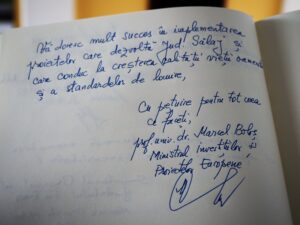 Vă doresc mult succes în implementarea
proiectelor care dezvoltă jud. Sălaj și
care conduc la creșterea calității vieții oamenilor
și a standardelor de
Cu prețuire pentru tot ceea
ce faceți,
prof. univ. dr. Marcel Boloș
Ministrul Investițiilor și
Proiectelor Europene